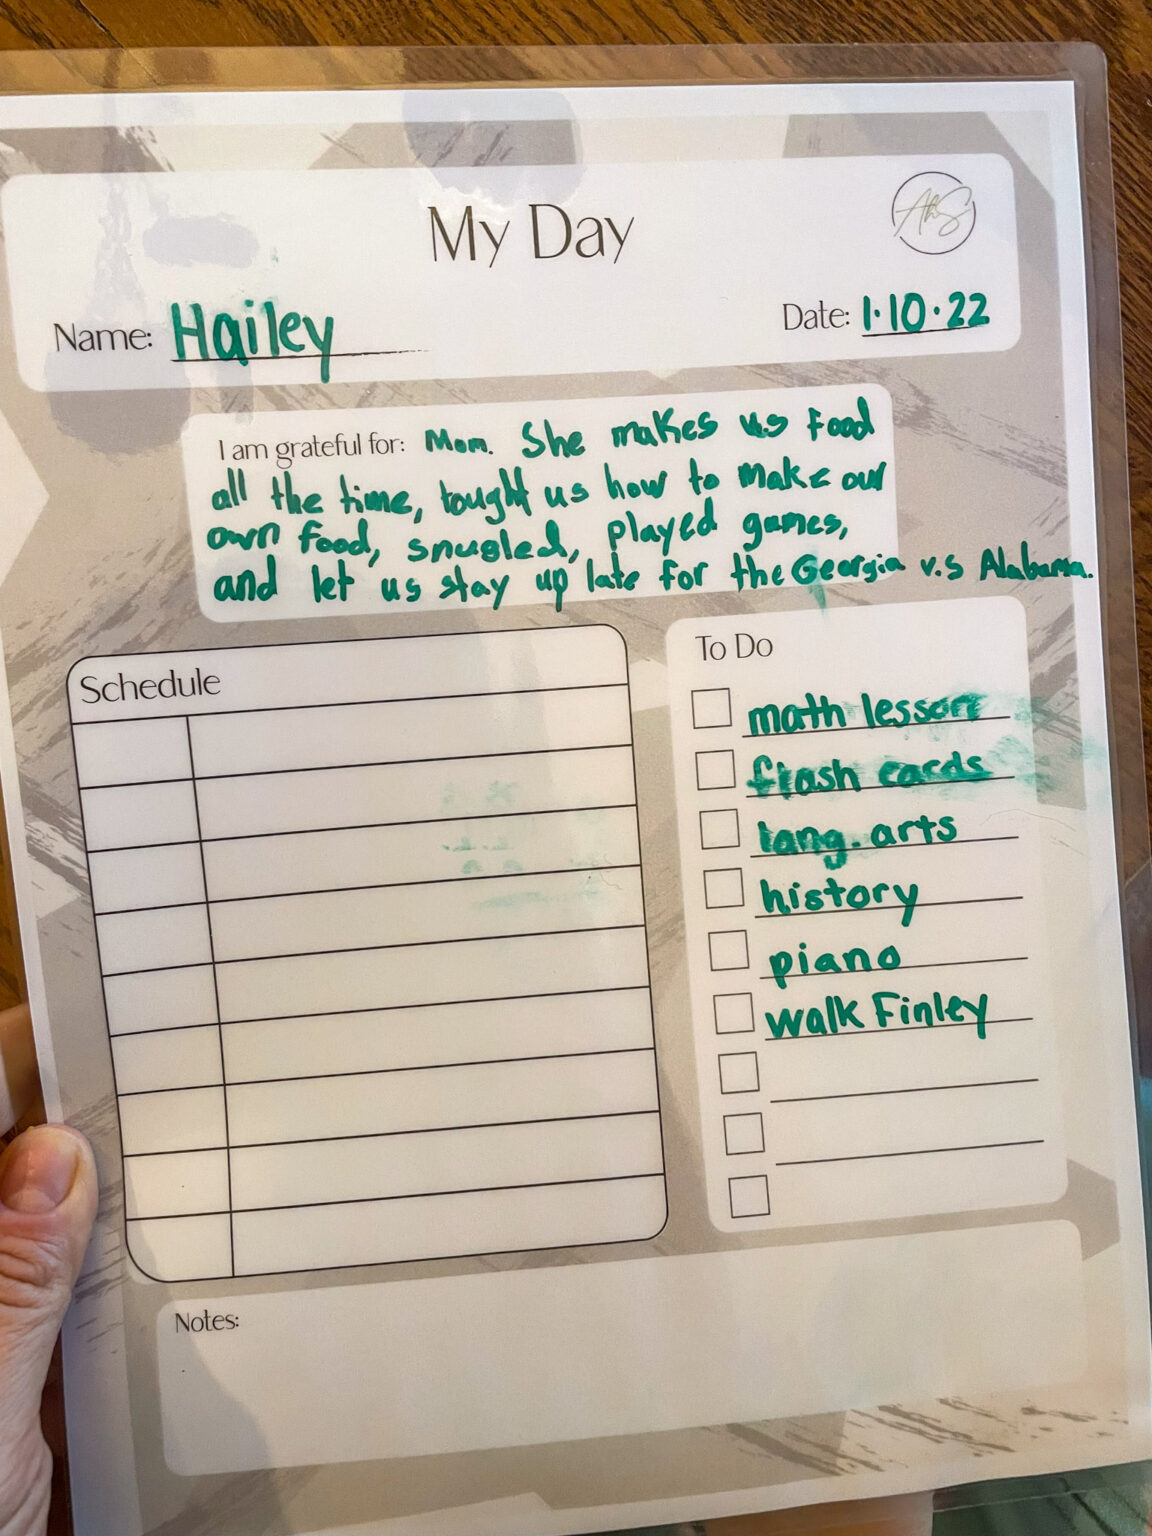 My Day
AhS
Name: Hailey
Date: 1·10·22
I am grateful for: Mom. She makes us food
all the time, tought us how to make our
own food, snugled, played games,
and let us stay up late for the Georgia v.s Alabama.
Schedule
To Do
math lesson
flash cards
lang. arts
history
piano
walk Finley
Notes: